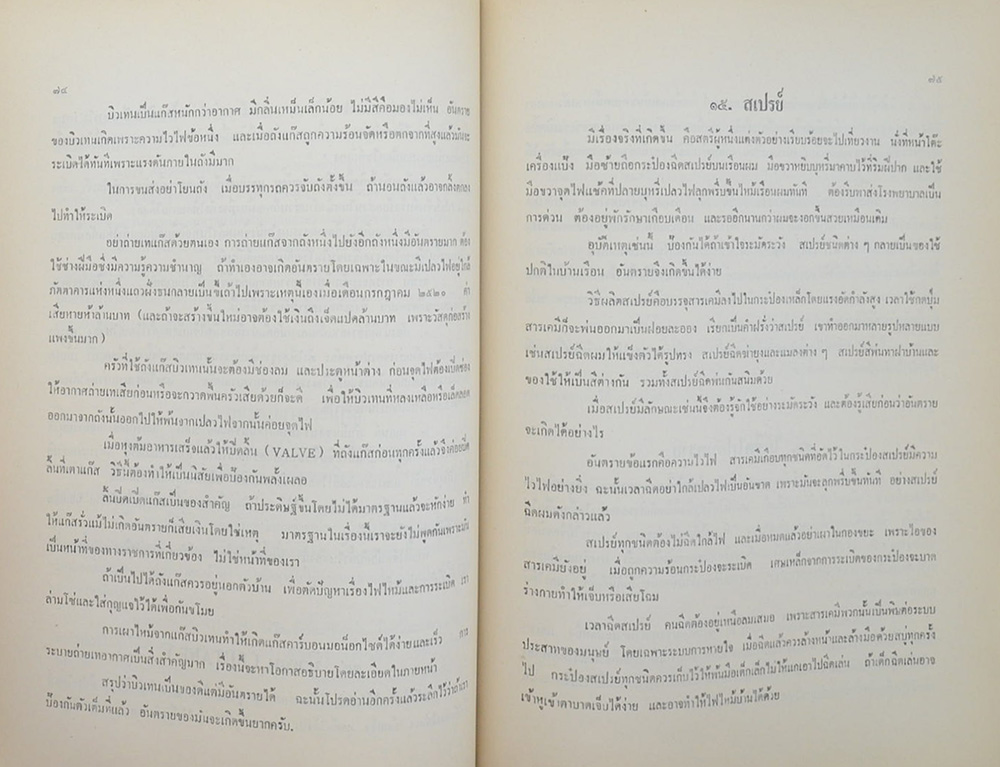 ๗๔
บิวเทนเป็นแก๊สหนักกว่าอากาศ มีกลิ่นเหม็นเล็กน้อย ไม่มีสีคือมองไม่เห็น อันตราย
ของบิวเทนเกิดเพราะความไวไฟข้อหนึ่ง และเมื่อถังแก๊สถูกความร้อนจัดหรือตกจากที่สูงแล้ว
ระเบิดได้ทันทีเพราะแรงดันภายในถังมีมาก
ในการขนส่งอย่าโยนถัง เมื่อบรรทุกรถควรจับถังตั้งขึ้น ถ้านอนถังแล้วอาจกลิ้งตกลง
ไปทำให้ระเบิด
อย่าถ่ายเทแก๊สด้วยตนเอง การถ่ายแก๊สจากถังหนึ่งไปยังอีกถังหนึ่งมีอันตรายมาก ต้อง
ใช้ช่างฝีมือซึ่งมีความรู้ความชำนาญ ถ้าทำเองอาจเกิดอันตรายโดยเฉพาะในขณะมีเปลวไฟอยู่ใกล้
ภัตตาคารแห่งหนึ่งแถวฝั่งธนกลายเป็นขี้เถ้าไปเพราะเหตุนี้เองเมื่อเดือนกรกฎาคม ๒๕๒๑
เสียหายห้าล้านบาท (และถ้าจะสร้างขึ้นใหม่อาจต้องใช้เงินถึงเจ็ดแปดล้านบาท เพราะวัสดุก่อสร้าง
แพงขึ้นมาก)
ครัวที่ใช้ถังแก๊สบิวเทนนั้นจะต้องมีช่องลม และประตูหน้าต่าง ก่อนจุดไฟต้องเปิดช่อง
ให้อากาศถ่ายเทเสียก่อนหรือจะกวาดพื้นครัวเสียด้วยก็จะดี เพื่อให้บิวเทนที่หลงเหลือหรือเล็ดลอด
ออกมาจากถังนั้นออกไปให้พ้นจากเปลวไฟจากนั้นค่อยจุดไฟ
เมื่อหุงต้มอาหารเสร็จแล้วให้ปิดลิ้น (VALVE) ที่ถังแก๊สก่อนทุกครั้งแล้วจึงค่อยปิด
ลิ้นที่เตาแก๊ส วิธีนี้ต้องทำให้เป็นนิสัยเพื่อป้องกันพลั้งเผลอ
ลิ้นปิดเปิดแก๊สเป็นของสำคัญ ถ้าประดิษฐ์ขึ้นโดยไม่ได้มาตรฐานแล้วจะหักง่าย ทำ
ให้แก๊สรั่วแม้ไม่เกิดอันตรายก็เสียเงินโดยใช่เหตุ มาตรฐานในเรื่องนี้เราจะยังไม่พูดกันเพราะมัน
เป็นหน้าที่ของทางราชการที่เกี่ยวข้อง ไม่ใช่หน้าที่ของเรา
ถ้าเป็นไปได้ถังแก๊สควรอยู่นอกตัวบ้าน เพื่อตัดปัญหาเรื่องไฟไหม้และการระเบิด เรา
ล่ามโซ่และใส่กุญแจไว้ได้เพื่อกันขโมย
การเผาไหม้จากแก๊สบิวเทนทำให้เกิดแก๊สคาร์บอนมอน็อกไซด์ได้ง่ายและเร็ว การ
ระบายถ่ายเทอากาศเป็นสิ่งสำคัญมาก เรื่องนี้จะหาโอกาสอธิบายโดยละเอียดในภายหน้า
สรุปว่าบิวเทนเป็นของดีแต่มีอันตรายได้ ฉะนั้นโปรดอ่านอีกครั้งแล้วระลึกไว้ว่าถ้าเรา
ป้องกันตัวเต็มที่แล้ว อันตรายของมันจะเกิดขึ้นยากครับ.
๗๕
๑๕. สเปรย์
มีเรื่องจริงที่เกิดขึ้น คือสตรีผู้หนึ่งแต่งตัวอย่างเรียบร้อยจะไปเที่ยวงาน นั่งที่หน้าโต๊ะ
เครื่องแป้ง มือซ้ายถือกระป๋องฉีดสเปรย์บนเรือนผม มือขวาหยิบบุหรี่มาคาบไว้ที่ริมฝีปาก และใช้
มือขวาจุดไฟแช็คที่ปลายบุหรี่เปลวไฟลุกพรึบขึ้นไหม้เรือนผมทันที ต้องรีบหาส่งโรงพยาบาลเป็น
การด่วน ต้องอยู่พักรักษาเกือบเดือน และรออีกนานกว่าผมจะงอกขึ้นสวยเหมือนเดิม
อุบัติเหตุเช่นนี้ ป้องกันได้ถ้าเข้าใจระมัดระวัง สเปรย์ชนิดต่าง ๆ กลายเป็นของใช้
ปกติในบ้านเรือน อันตรายจึงเกิดขึ้นได้ง่าย
วิธีผลิตสเปรย์คือบรรจุสารเคมีลงไปในกระป๋องเหล็กโดยแรงอัดกำลังสูง เวลาใช้กดปุ่ม
สารเคมีก็จะพ่นออกมาเป็นฝอยละออง เรียกเป็นคำฝรั่งว่าสเปรย์ เขาทำออกมาหลายรูปหลายแบบ
เช่นสเปรย์ฉีดผมให้แข็งตัวได้รูปทรง สเปรย์ฉีดฆ่ายุงและแมลงต่าง ๆ สเปรย์สีพ่นทาฝาบ้านและ
ของใช้ให้เป็นสีต่างกัน รวมทั้งสเปรย์ฉีดพ่นกันสนิมด้วย
เมื่อสเปรย์มีลักษณะเช่นนี้จึงต้องรู้จักใช้อย่างระมัดระวัง และต้องรู้เสียก่อนว่าอันตราย
จะเกิดได้อย่างไร
อันตรายข้อแรกคือความไวไฟ สารเคมีเกือบทุกชนิดที่อัดไว้ในกระป๋องสเปรย์มีความ
ไวไฟอย่างยิ่ง ฉะนั้นเวลาฉีดอย่าใกล้เปลวไฟเป็นอันขาด เพราะมันจะลุกพรึบขึ้นทันที อย่างสเปรย์
ฉีดผมดังกล่าวแล้ว
สเปรย์ทุกชนิดต้องไม่ฉีดใกล้ไฟ และเมื่อหมดแล้วอย่าเผาในกองขยะ เพราะไอของ
สารเคมียังอยู่ เมื่อถูกความร้อนกระป๋องจะระเบิด เศษเหล็กจากการระเบิดของกระป๋องจะบาด
ร่างกายทำให้เจ็บหรือเสียโฉม
เวลาฉีดสเปรย์ คนฉีดต้องอยู่เหนือลมเสมอ เพราะสารเคมีพวกนั้นเป็นพิษต่อระบบ
ประสาทของมนุษย์ โดยเฉพาะระบบการหายใจ เมื่อฉีดแล้วควรล้างหน้าและล้างมือด้วยสบู่ทุกครั้ง
ไป กระป๋องสเปรย์ทุกชนิดควรเก็บไว้ให้พ้นมือเด็กเล็กไม่ให้แกเอาไปฉีดเล่น ถ้าเด็กฉีดเล่นอาจ
เข้าหูเข้าตาบาดเจ็บได้ง่าย และอาจทำให้ไฟไหม้บ้านได้ด้วย